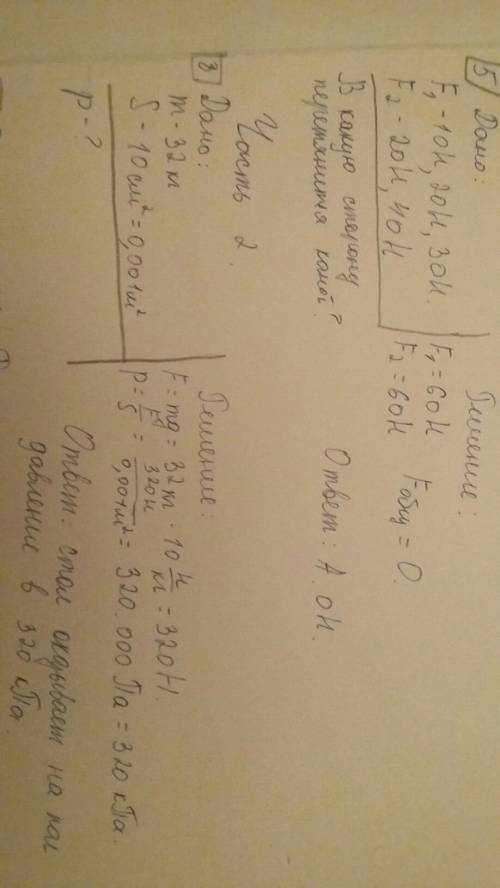 5) Дано:
F₁ - 10Н, 20Н, 30Н.
F₂ - 20Н, 40Н
В какую сторону
перетянится канат?
Решение:
F₁ = 60Н
F₂ = 60Н Fобщ = 0.
Ответ: А. 0Н.
Часть 2.
8) Дано:
m - 32 кг
S - 10 см² = 0,001 м²
P - ?
Решение:
F = mg = 32 кг · 10 Н/кг = 320Н.
P = F/S = 320Н/0,001м² = 320.000 Па = 320 кПа.
Ответ: стол оказывает на пол
давление в 320 кПа.